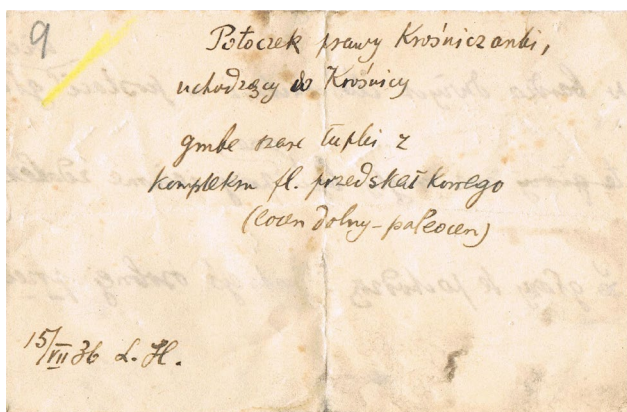 9
Potoczek prawy Krośniczanki,
uchodzący do Krośnicy
grube szare łupki z
kompleksu fl. przedskałkowego
(eocen dolny-paleocen)
15/VII 36 L. H.